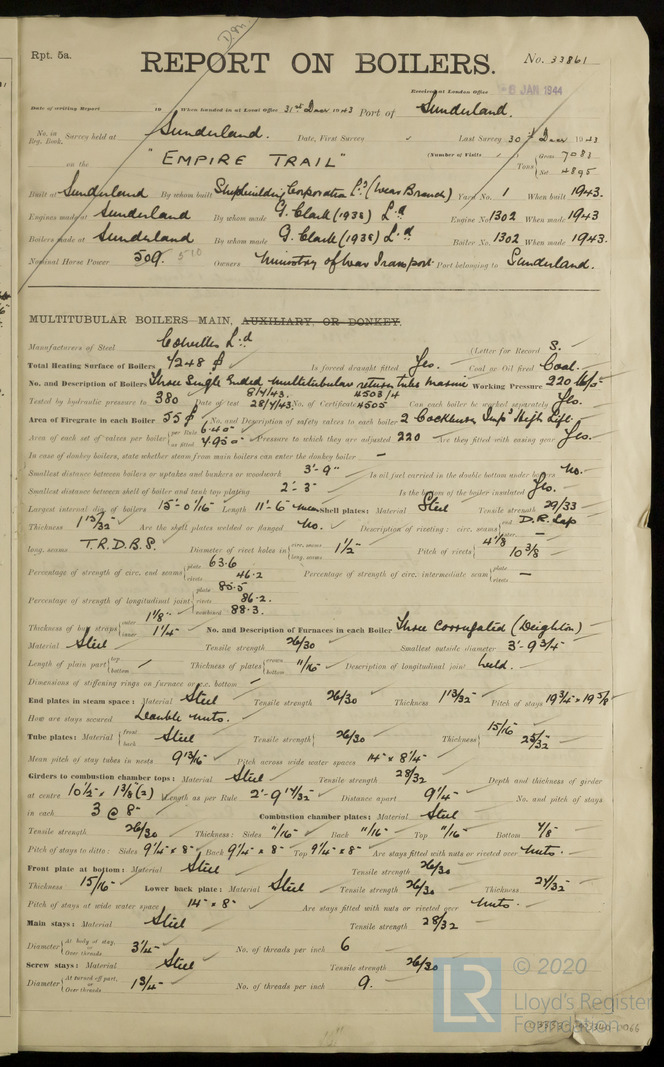 D.m.
Rpt. 5a.
REPORT ON BOILERS.
No. 33861
Received at London Office 6 JAN 1944
Date of writing Report 19 When handed in at Local Office 31st Decr 1943 Port of Sunderland.
No. in Reg. Book. Survey held at Sunderland. Date, First Survey Last Survey 30th Decr 1943
on the "EMPIRE TRAIL" (Number of Visits ) Tons { Gross 7083 Net 4895
Built at Sunderland By whom built Shipbuilding Corporation Ld (Wear Branch) Yard No. 1 When built 1943.
Engines made at Sunderland By whom made G. Clark (1938) Ld Engine No. 1302 When made 1943
Boilers made at Sunderland By whom made G. Clark (1938) Ld Boiler No. 1302 When made 1943.
Nominal Horse Power 509. 510 Owners Ministry of War Transport Port belonging to Sunderland.
MULTITUBULAR BOILERS—MAIN, AUXILIARY, OR DONKEY.
Manufacturers of Steel Colvilles Ld (Letter for Record S.
Total Heating Surface of Boilers 7248 Is forced draught fitted Yes. Coal or Oil fired Coal.
No. and Description of Boilers Three Single Ended multitubular return tube marine Working Pressure 220
Tested by hydraulic pressure to 380 Date of test 8/4/43. 28/4/43. No. of Certificate 4503/4 4505 Can each boiler be worked separately Yes.
Area of Firegrate in each Boiler 55 No. and Description of safety valves to each boiler 2 Cockburn Impd High Lift.
Area of each set of valves per boiler { per Rule 6.40 as fitted 7.950 Pressure to which they are adjusted 220 Are they fitted with easing gear Yes.
In case of donkey boilers, state whether steam from main boilers can enter the donkey boiler —
Smallest distance between boilers or uptakes and bunkers or woodwork 3'-9" Is oil fuel carried in the double bottom under boilers No.
Smallest distance between shell of boiler and tank top plating 2'-3" Is the bottom of the boiler insulated Yes.
Largest internal dia. of boilers 15'-0 1/16" Length 11'-6" mean Shell plates: Material Steel Tensile strength 29/33
Thickness 1 13/32" Are the shell plates welded or flanged No. Description of riveting: circ. seams { end D.R. Lap inter. —
long. seams T.R.D.B.S. Diameter of rivet holes in { circ. seams long. seams 1 1/2" Pitch of rivets { 4 1/8 10 3/8
Percentage of strength of circ. end seams { plate 63.6 rivets 46.2 Percentage of strength of circ. intermediate seam { plate rivets —
Percentage of strength of longitudinal joint { plate 85.5 rivets 86.2. combined 88.3.
Thickness of butt straps { outer 1 1/8" inner 1 1/4" No. and Description of Furnaces in each Boiler Three Corrugated (Deighton)
Material Steel Tensile strength 26/30 Smallest outside diameter 3'-9 3/4"
Length of plain part { top bottom — Thickness of plates { crown bottom 11/16" Description of longitudinal joint Weld.
Dimensions of stiffening rings on furnace or c.c. bottom —
End plates in steam space: Material Steel Tensile strength 26/30 Thickness 1 13/32" Pitch of stays 19 3/4" x 19 5/8"
How are stays secured Double nuts.
Tube plates: Material { front back Steel Tensile strength { 26/30 Thickness { 15/16" 25/32"
Mean pitch of stay tubes in nests 9 13/16" Pitch across wide water spaces 14" x 8 1/4"
Girders to combustion chamber tops: Material Steel Tensile strength 28/32 Depth and thickness of girder
at centre 10 1/2" x 1 3/8"(2) Length as per Rule 2'-9 17/32" Distance apart 9 1/4" No. and pitch of stays
in each 3 @ 8" Combustion chamber plates: Material Steel
Tensile strength 26/30 Thickness: Sides 11/16" Back 11/16" Top 11/16" Bottom 7/8"
Pitch of stays to ditto: Sides 9 1/4" x 8" Back 9 1/4" x 8" Top 9 1/4" x 8" Are stays fitted with nuts or riveted over Nuts.
Front plate at bottom: Material Steel Tensile strength 26/30
Thickness 15/16" Lower back plate: Material Steel Tensile strength 26/30 Thickness
Pitch of stays at wide water space 14" x 8" Are stays fitted with nuts or riveted over Nuts.
Main stays: Material Steel Tensile strength 28/32
Diameter { At body of stay, or Over threads 3 1/4" No. of threads per inch 6
Screw stays: Material Steel Tensile strength 26/30
Diameter { At turned off part, or Over threads 1 3/4" No. of threads per inch 9.
LR © 2020
Lloyd's Register
Foundation